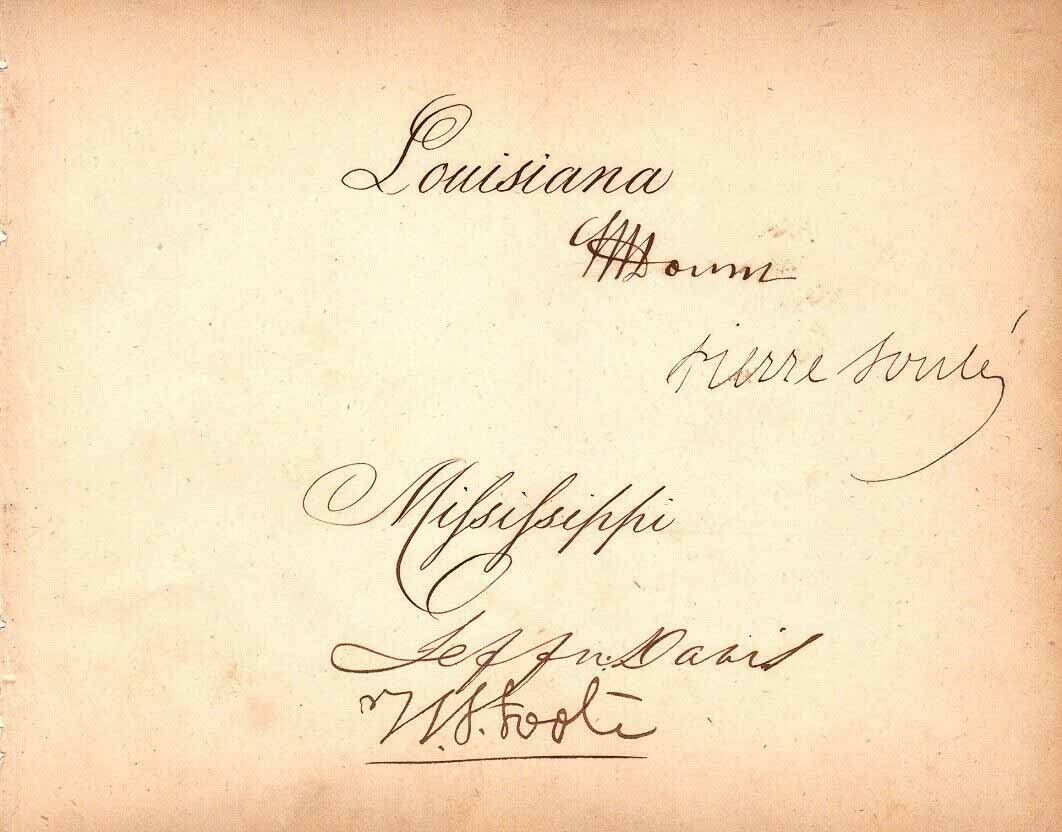 Louisiana
S W Downs
Pierre Soulé
Miſsiſsippi
Jeffn. Davis
H. S. Foote